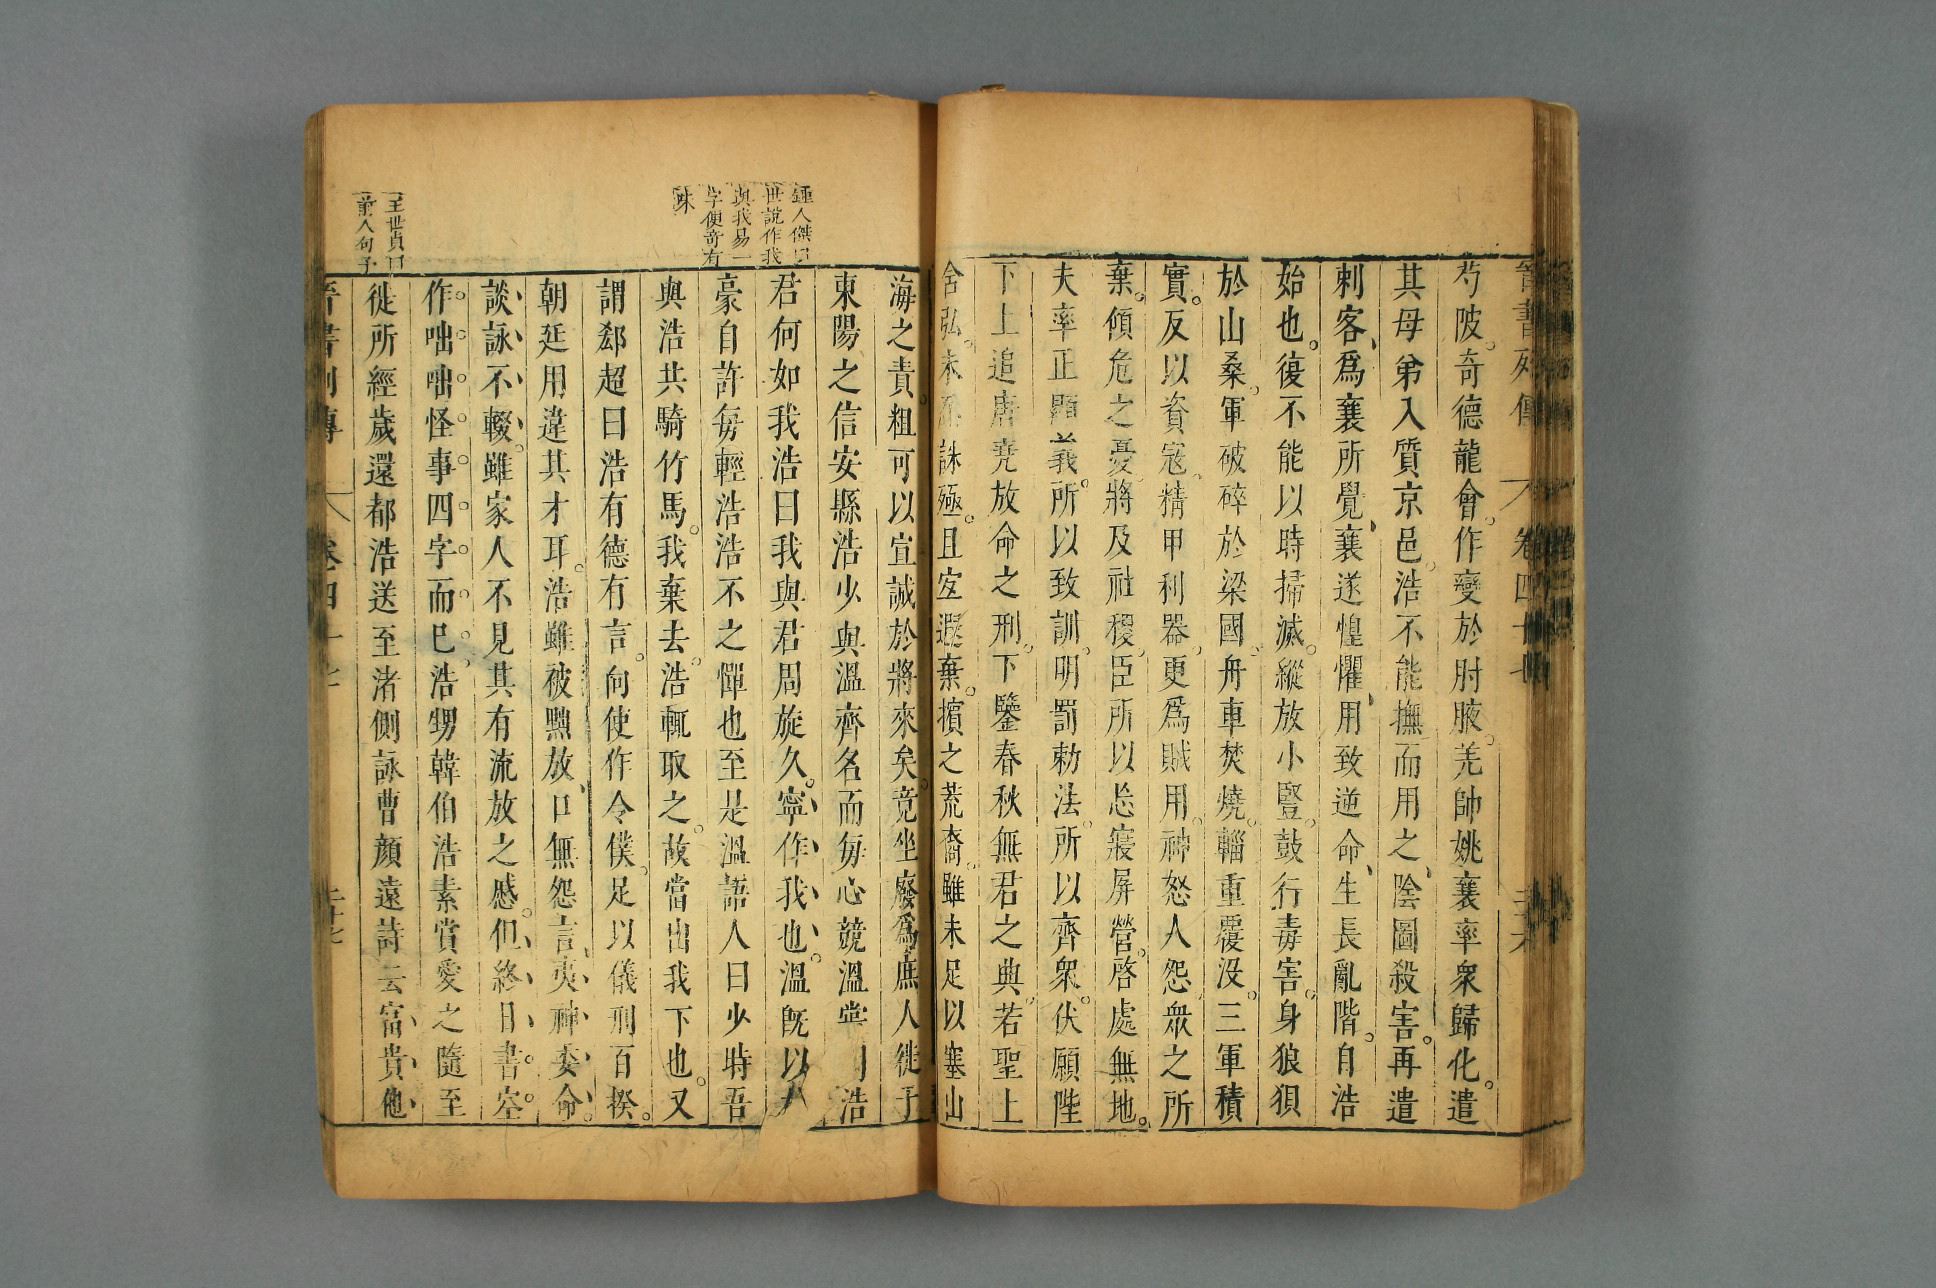 晉書列傳 卷四十七 二十六
芍陂奇德龍會作變於肘腋羌帥姚襄率衆歸化遣
其母弟入質京邑浩不能撫而用之陰圖殺害再遣
刺客爲襄所覺襄遂惶懼用致逆命生長亂階自浩
始也復不能以時掃滅縱放小豎鼓行毒害身狼狽
於山桑軍破碎於梁國舟車焚燒輜重覆沒三軍積
實反以資寇精甲利器更爲賊用神怒人怨衆之所
棄傾危之憂將及社稷臣所以忘寢屏營啓處無地
夫率正顯義所以致訓明罰勑法所以齊衆伏願陛
下上追唐堯放命之刑下鑒春秋無君之典若聖上
含弘未忍誅殛且宜遐棄擯之荒裔雖未足以塞山
海之責粗可以宣誡於將來矣竟坐廢爲庶人徙于
東陽之信安縣浩少與溫齊名而每心競溫嘗 浩
君何如我浩曰我與君周旋久寧作我也溫旣以
豪自許每輕浩浩不之憚也至是溫語人曰少時吾
與浩共騎竹馬我棄去浩輒取之故當出我下也又
謂郄超曰浩有德有言向使作令僕足以儀刑百揆
朝廷用違其才耳浩雖被黜放口無怨言夷神委命
談詠不輟雖家人不見其有流放之慼但終日書空
作咄咄怪事四字而已浩甥韓伯浩素賞愛之隨至
徙所經歲還都浩送至渚側詠曹顏遠詩云富貴他
晉書列傳 卷四十七 二十七
鍾人傑曰
世說作我
與我易一
字便奇有
味
王世貞曰
前人句子